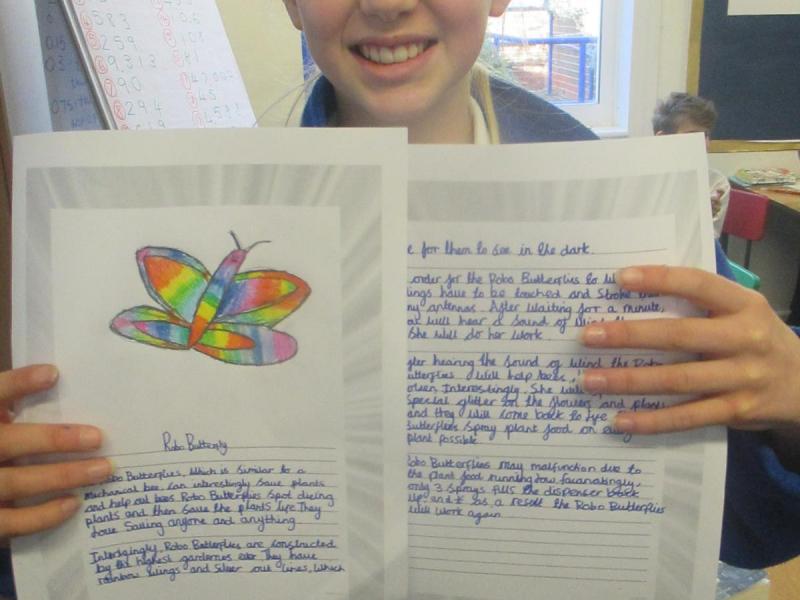 6583
259
69,313
790
829.4
Robo Butterfly
Robo Butterflies, Which is Similar to a
mechanical bee. Can interestingly Save plants
and help out bees. Robo Butterflies Spot dieing
plants and then Save the plants life. They
love Saving anyone and anything
Intergingly, Robo Butterflies are constructed
by the highest gardemes ever. They have
rainbow wings and Silver out lines, Which
e for them to see in the dark.
order for the Robo Butterflies to
ings have to be touched and Stroke
ny antennas. After Waiting for a minute,
ou will hear a Sound of Wind
She will do her work.
fter hearing the Sound of Wind the Robo
utterflies Will help bees,
olsen Interestingly. She Will
Special glitter on the flowers and plants
and they will come back to life.
Butterflies Spray plant food on every
plant possible
Robo Butterflies may malfunction due to
the plant food running low. facanatingly,
only 3 Sprays fills the dispenser back
up. and as a result the Robo Butterflies
Will work again.